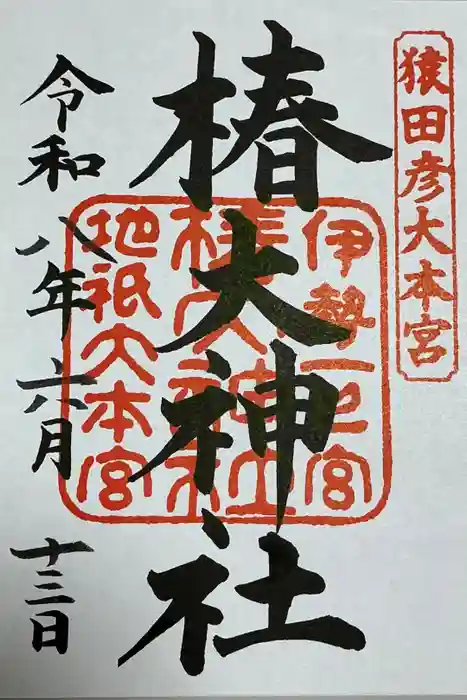 猿田彦大本宮
椿大神社
伊勢一之宮
椿大神社
地祇大本宮
令和八年六月十三日